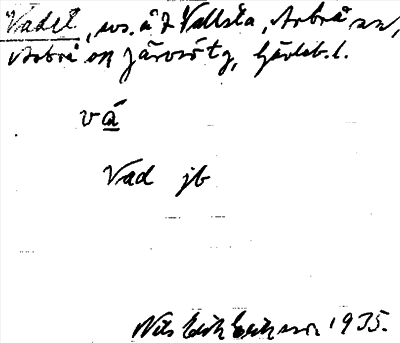 "Vadet", svs. å 2 Vallsta, Arbrå sn,
Arbrå og Järvsö tg, Gävleb. l.
vá̲
Vad jb
Nils Erik Eriksson 1935.